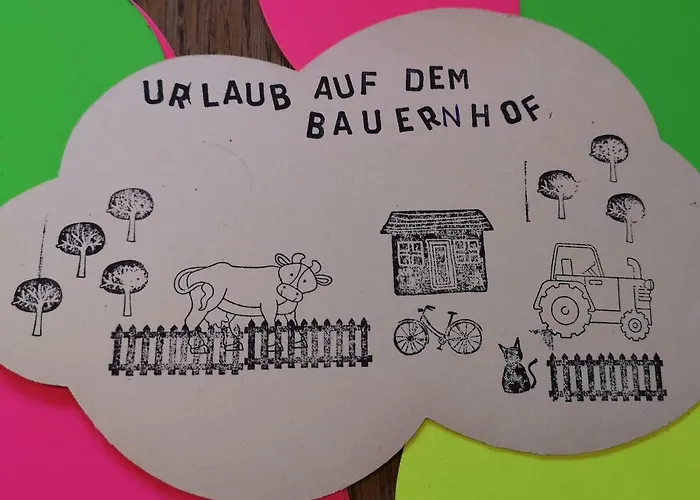 URLAUB AUF DEM
BAUERNHOF